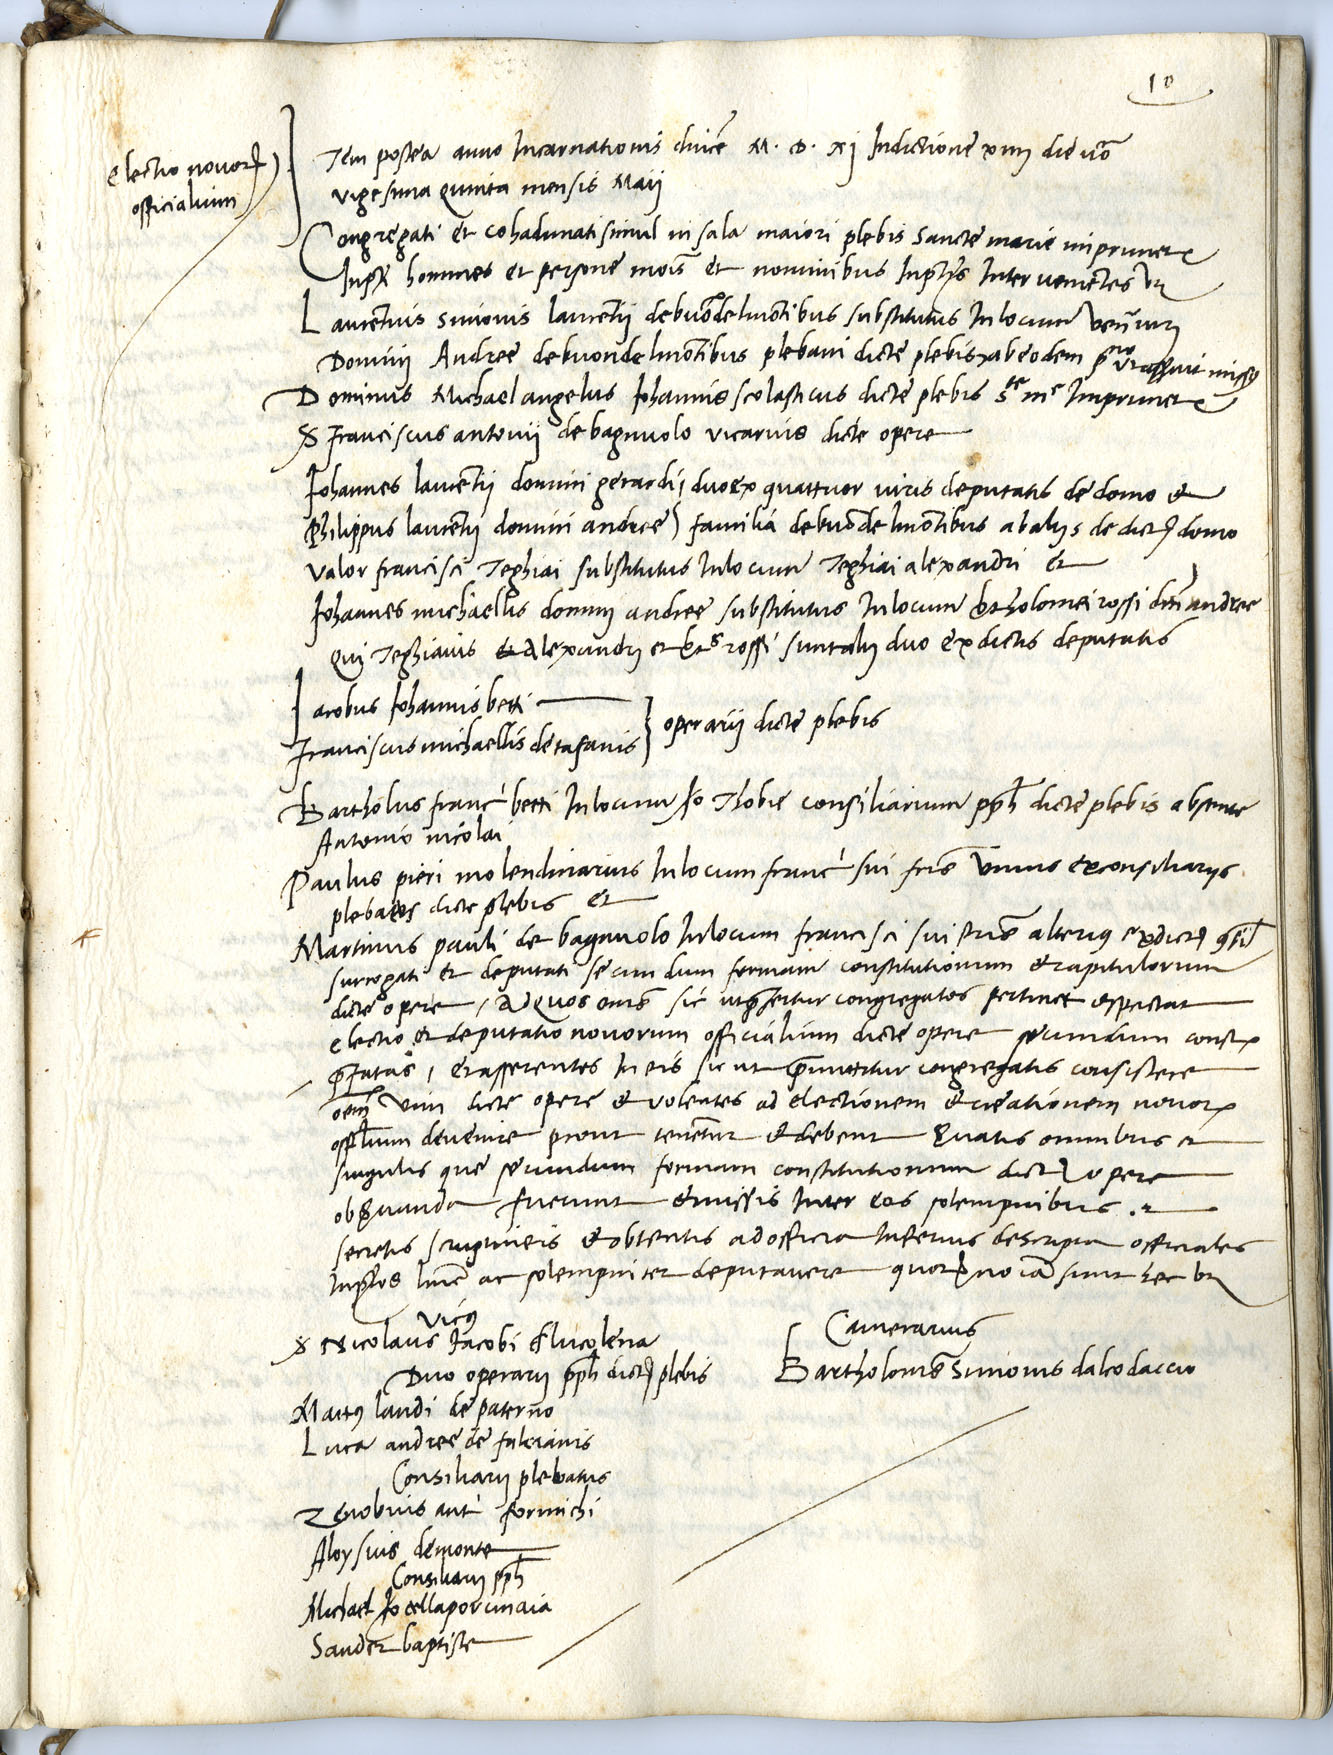 10
Electio novor(um)
officialium
Item postea anno Incarnationis dnice M. D. xi Indictione xiiii die vo
vigesima quinta mensis Maii
Congregati et cohadunati simul in sala maiori plebis Sancte marie imprunete
Infrti homines et persone mois et nominibus Infrtis Intervenientes vz
Laurentius simonis laurentii de buondelmontibus substitutus In locum Ven. viri
Domini Andree de buondelmontibus plebani dicte plebis & ab eodem
Dominus Michael angelus Iohannis scolasticus dicte plebis Ste me Imprunete
S Franciscus antonii de bagnuolo vicarius dicte opere
Iohannes laurentii domini gerardi, duo ex quattuor viris deputatis de domo et
Philippus laurentii domini andree) familia de buondelmontibus ab aliis de dicta domo
Valor francisci Teghiai substitutus In locum Teghiai alexandri et
Iohannes michaellis domini andree substitutus In locum bartholomei rossi dni andree
qui Teghiaius et Alexandri et rossi sunt alii duo ex dictis deputatis
Iacobus Iohannis betti
Franciscus michaellis de tafanis } operarii dicte plebis
Bartholus franci betti In locum Io Thobie consiliarium ppli dicte plebis absente
Antonio nicolai
Paulus pieri molendinarius In locum franci sui fris Unius ex consiliariis
plebatus dicte plebis et
Martinus pauli de bagnuolo In locum francisci sui fris alterius ex dictis
surrogati et deputati secundum formam constitutionum et capitulorum
dicte opere, ad quos omnes sic ut prefertur congregatos pertinet et spectat
electio et deputatio novorum officialium dicte opere secundum const.
prefatas, et asserentes In eis sic ut premittitur congregatis consistere
oem vim dicte opere et volentes ad electionem et creationem novor.
offitialium devenire prout tenentur et debent servatis omnibus et
singulis que secundum formam constitutionum dicte opere
observanda fuerunt et missis Inter eos solempnibus et
secretis scruptineis et obtentis ad officia Inferius descripta officiales
Infrtos hinc ac solempniter deputavere quor. noia sunt hec vz
Vicus
S Nicolaus Iacobi Flucolena
Duo operarii ppli dicte plebis
Matteus landi de paterno
Luca andree de falcianis
Consiliarii plebatus
Zenobius ant. formichi
Aloysius de monte
Consiliarii ppli
Michael Io cellaporcinaia
Sander baptiste
Camerarius
Bartholomeus Simonis dalcodaccio